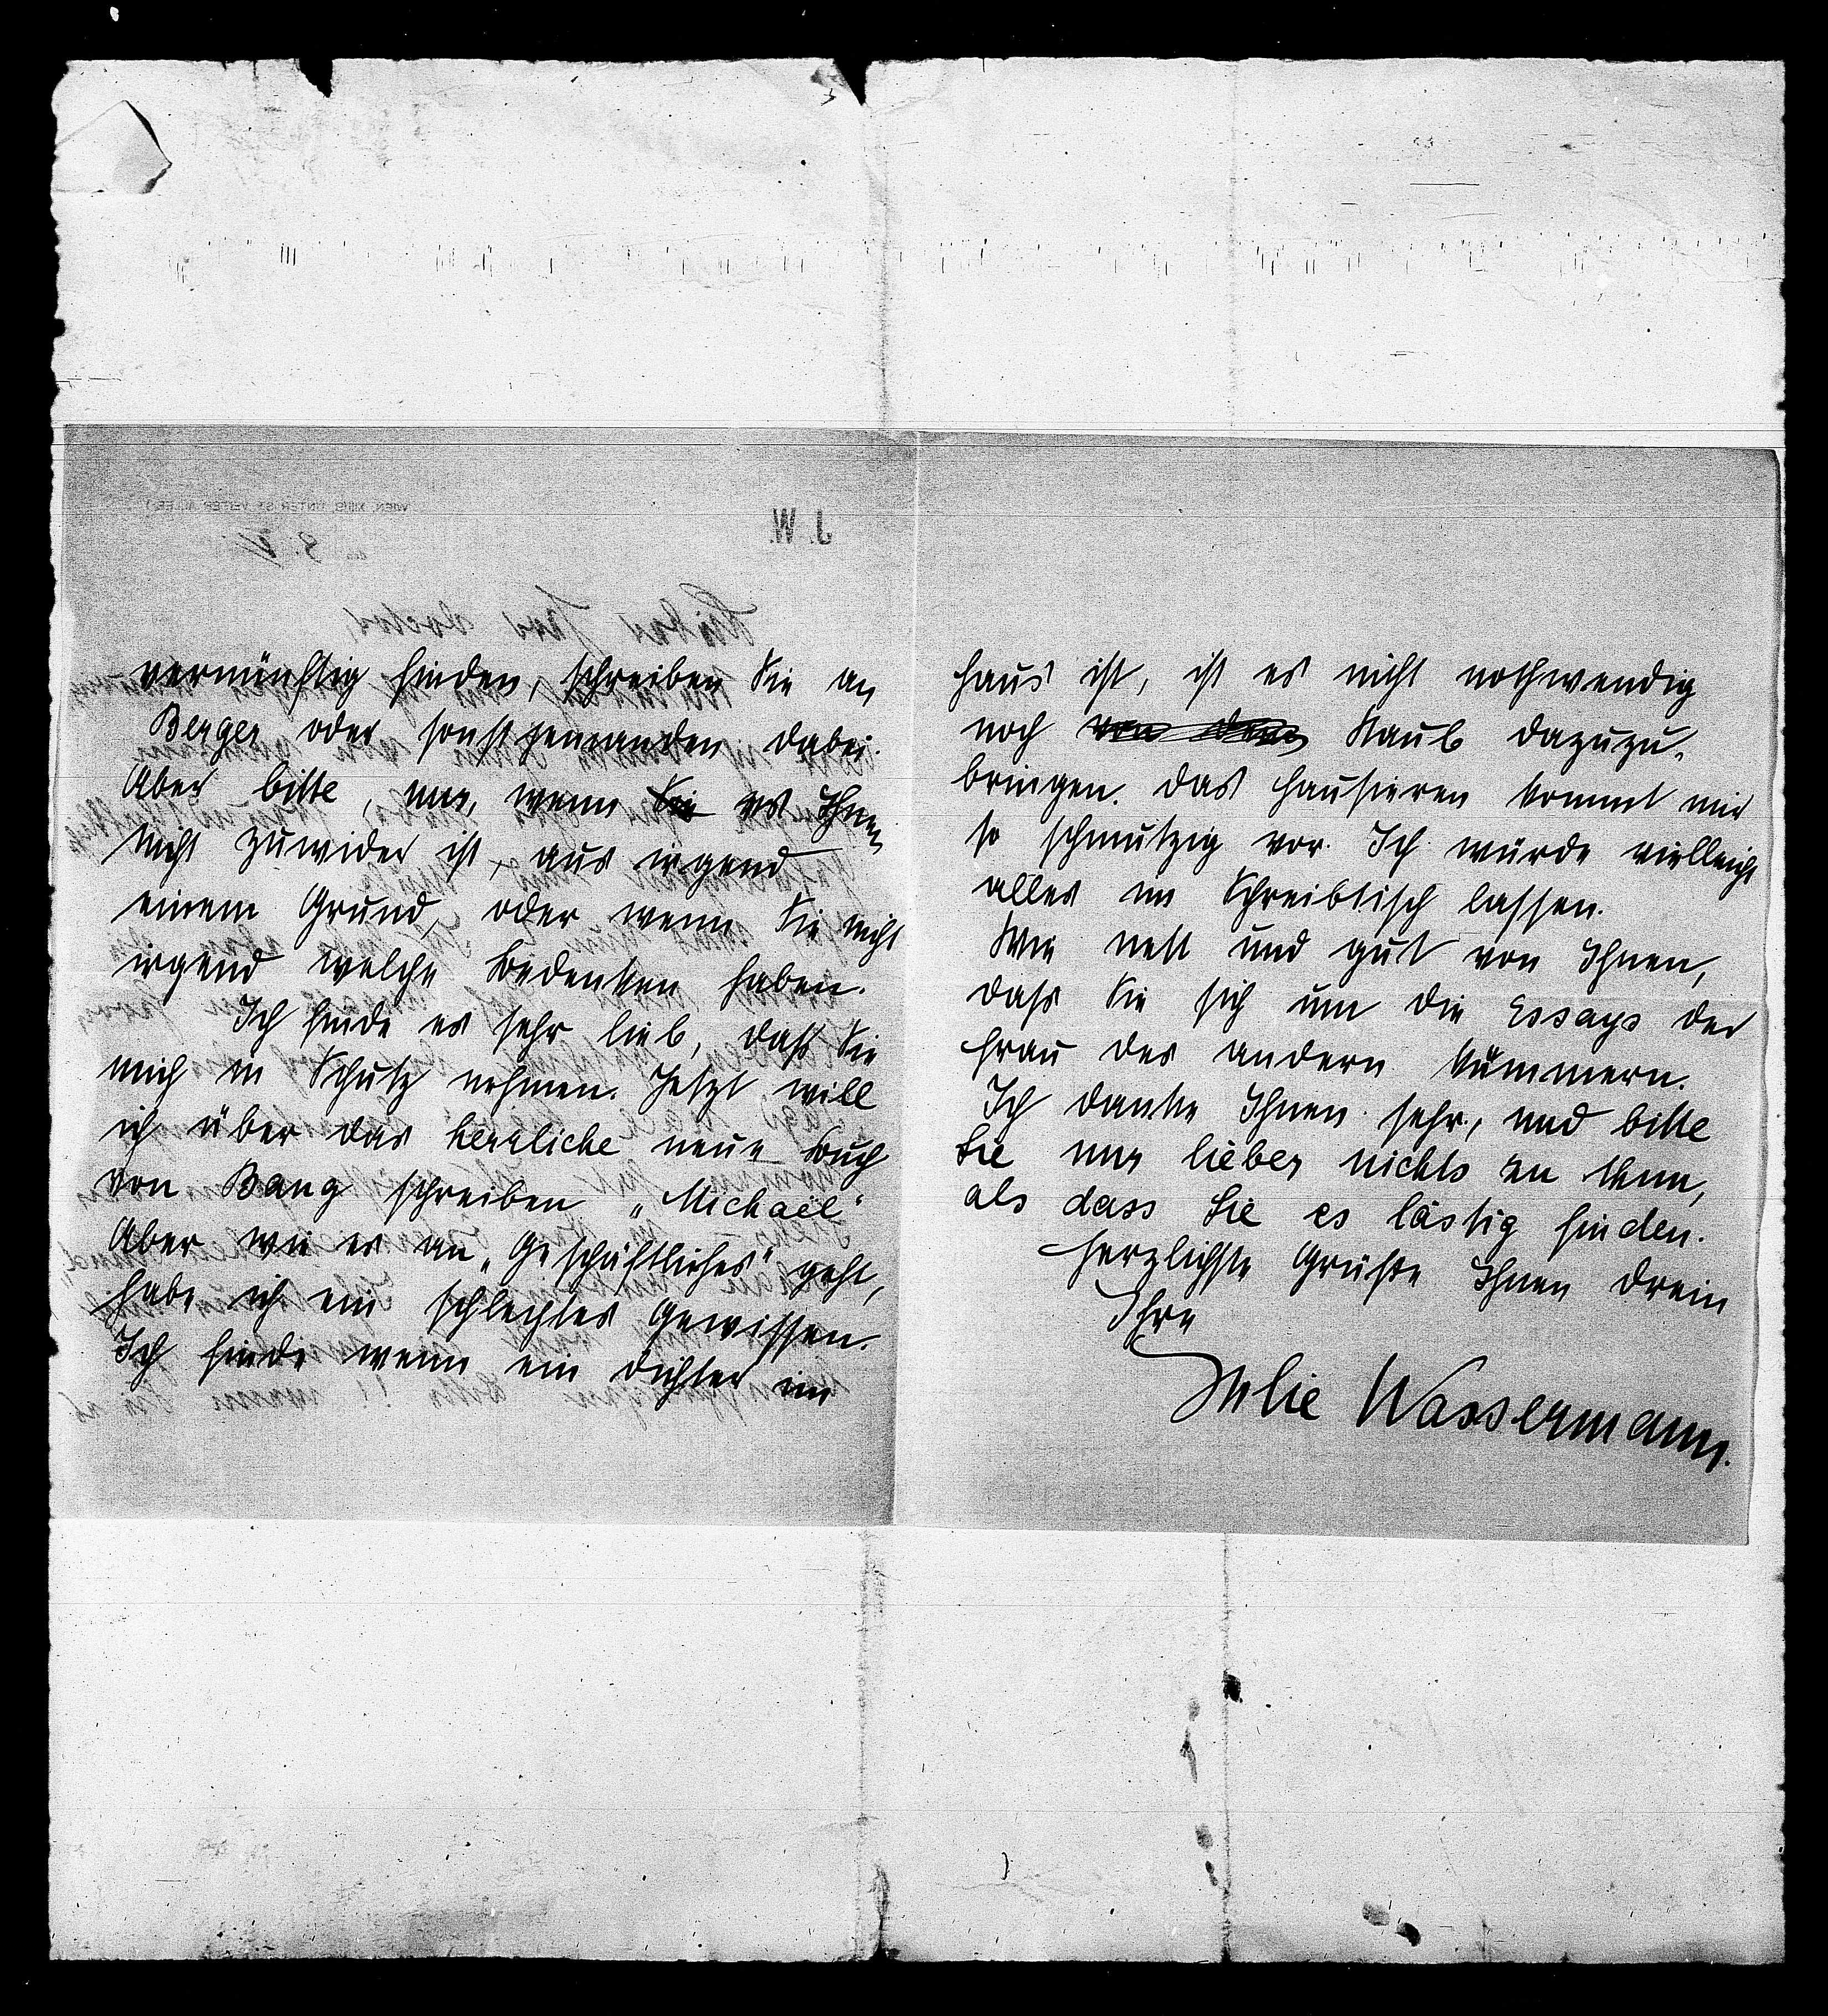 vernünftig finden, schreiben Sie an
Berger oder sonst jemanden dabei.
Aber bitte, nur, wenn Sie es Ihnen
nicht zuwider ist, aus irgend
einem Grund, oder wenn Sie nicht
irgend welche Bedenken haben.
Ich finde es sehr lieb, daß Sie
mich in Schutz nehmen. Jetzt will
ich über das herrliche neue Buch
von Bang schreiben „Michaël“
Aber wie es an „Geschäftliches“ geht,
habe ich ein schlechtes Gewissen.
Ich finde wenn ein Dichter im
Haus ist, ist es nicht nothwendig
noch Staub dazuzu-
bringen. Das Hausieren kommt mir
so schmutzig vor. Ich würde vielleicht
alles im Schreibtisch lassen.
Wie nett und gut von Ihnen,
daß Sie sich um die Essays der
Frau des andern kümmern.
Ich danke Ihnen sehr, und bitte
Sie nur lieber nichts zu thun,
als dass Sie es lästig finden.
Herzlichste Grüße Ihnen Drein
Ihre
Julie Wassermann.